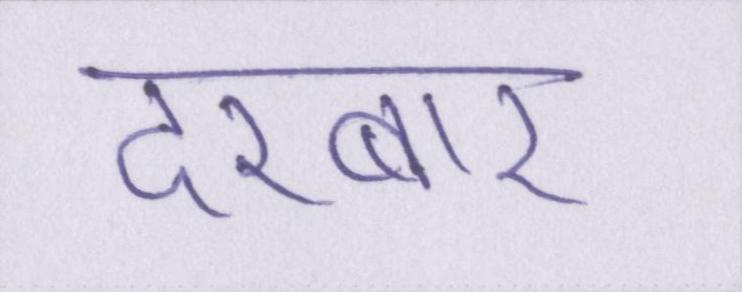 दरबार